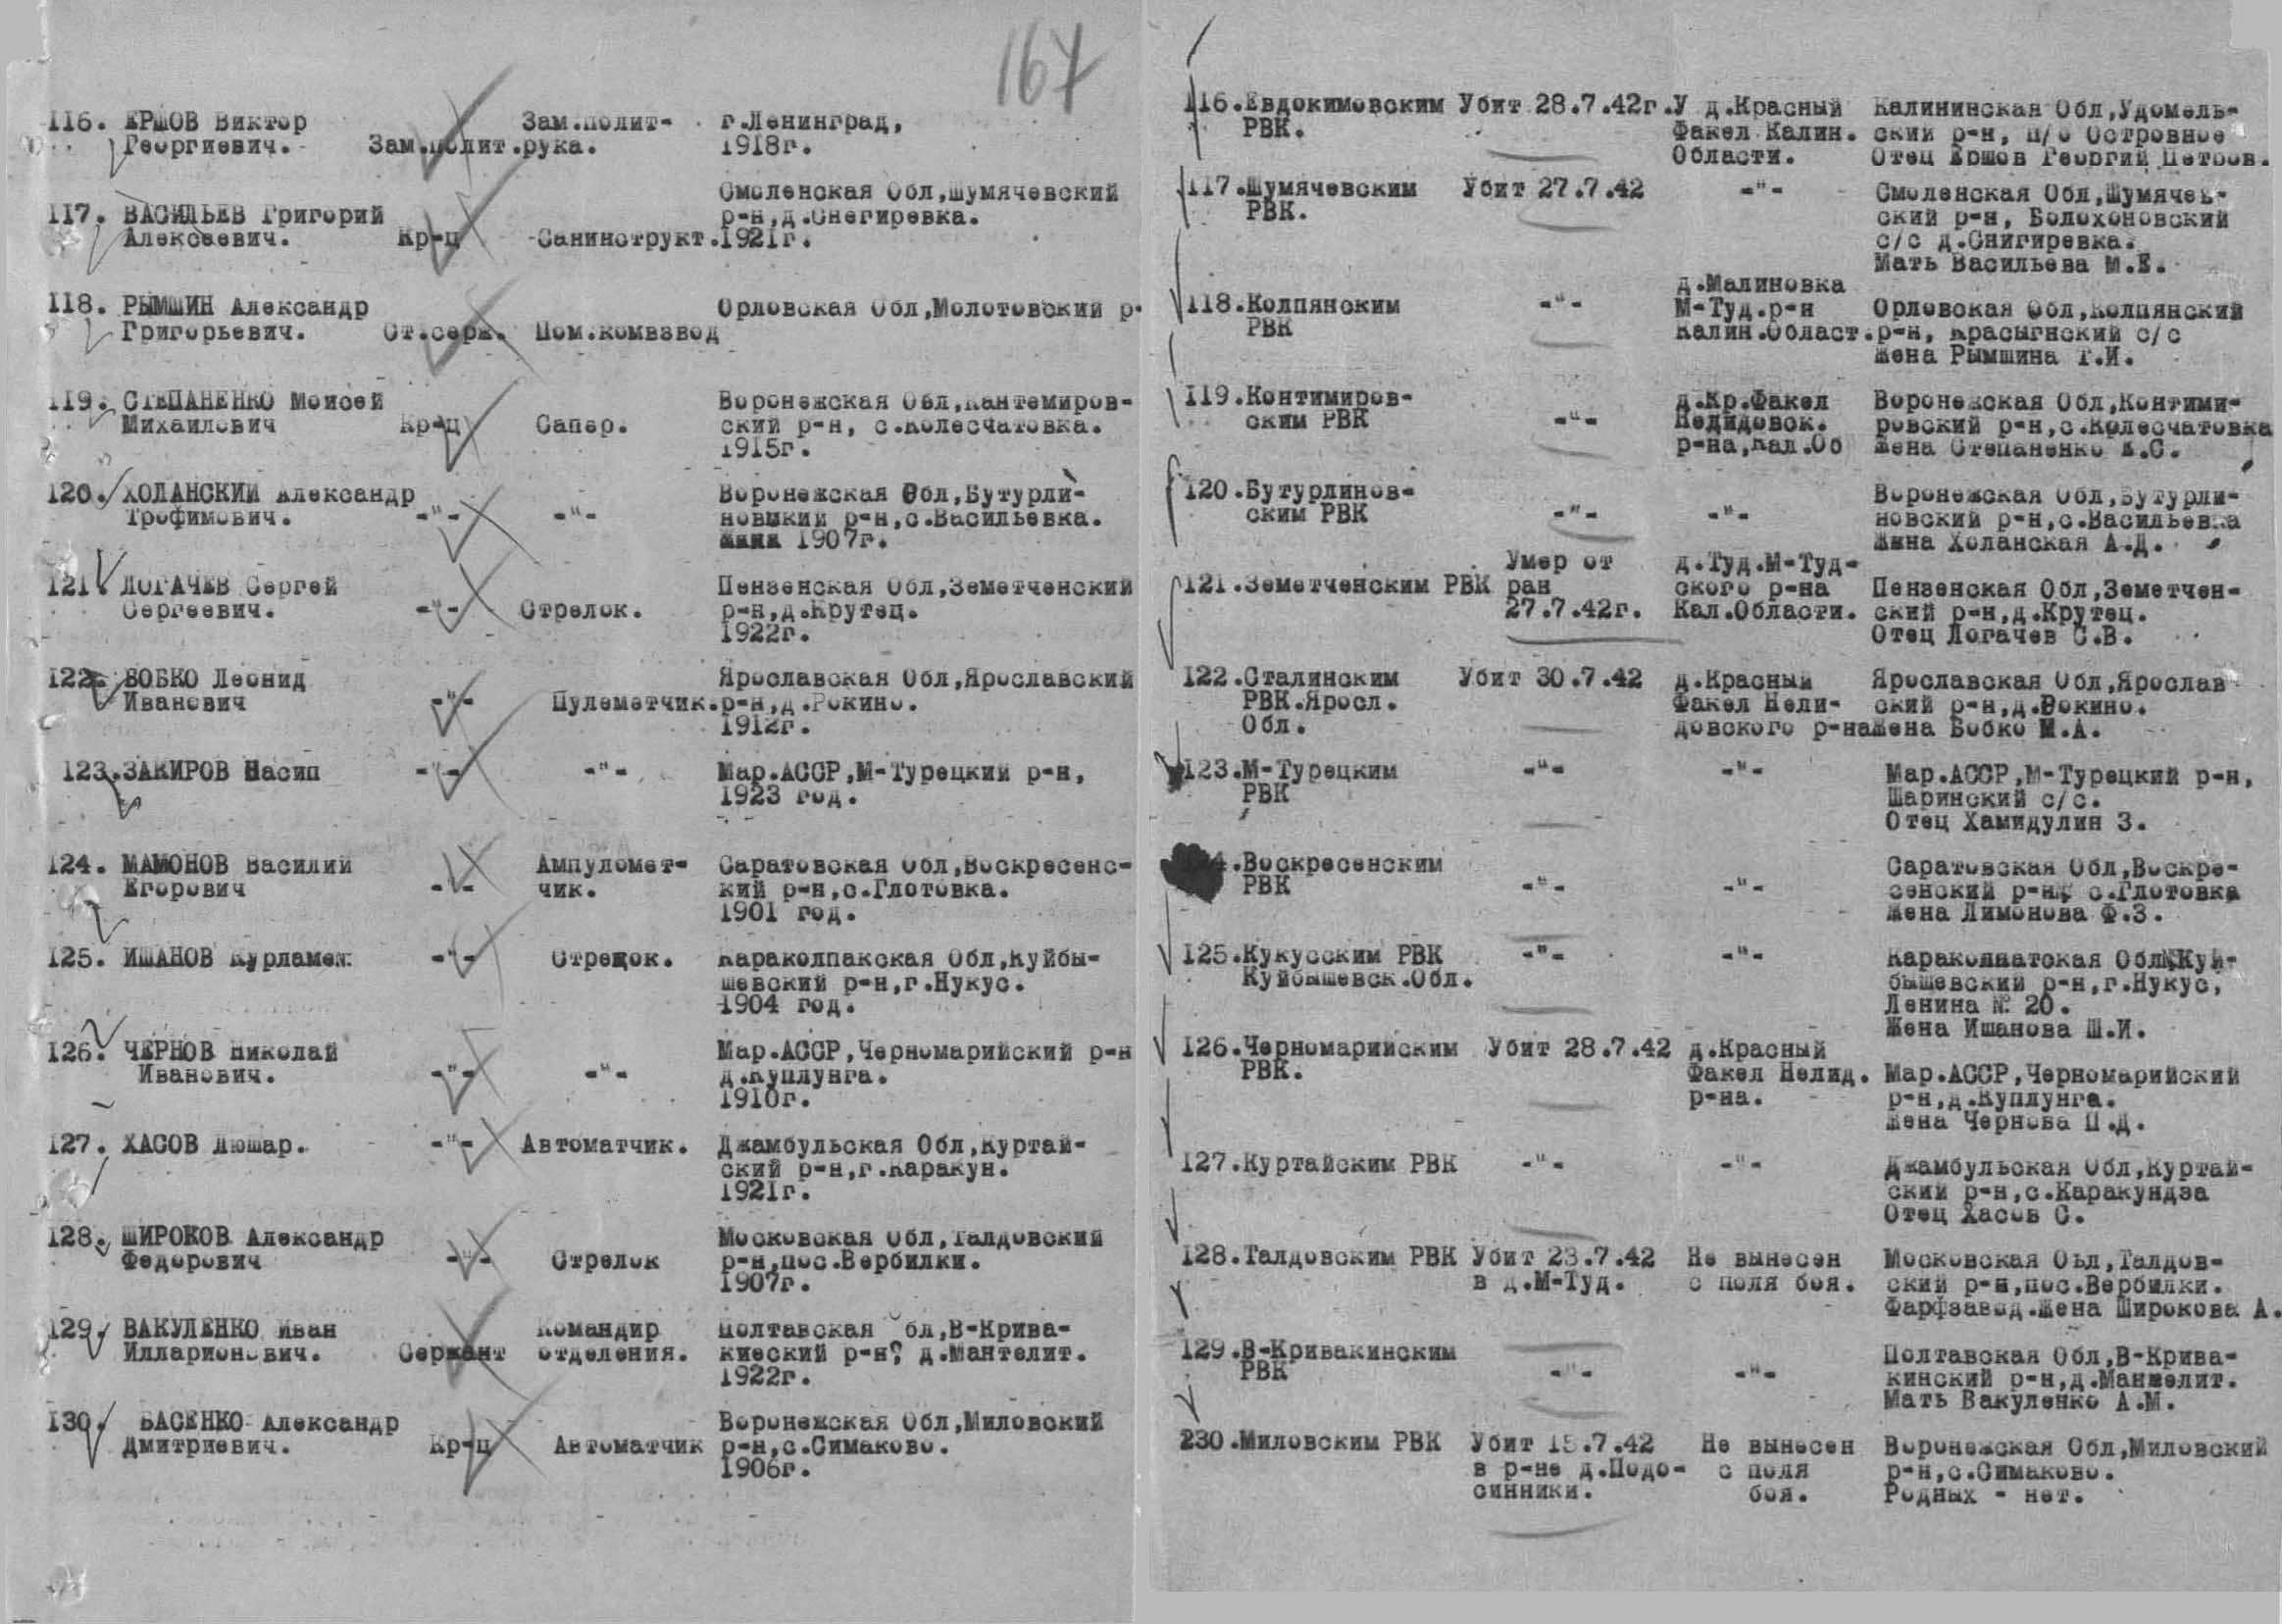 167
116. ЕРШОВ Виктор Зам.полит- г.Ленинград,
Георгиевич. Зам.полит.рука. 1918г.
Смоленская Обл,Шумячевский
117. ВАСИЛЬЕВ Григорий р-н,д.Снегиревка.
Алексеевич. Кр-ц Санинструкт.1921г.
118. РЫМШИН Александр Орловская Обл,Молотовский р-
Григорьевич. Ст.серж. Пом.комвзвод
119. СТЕПАНЕНКО Моисей Воронежская Обл,Кантемиров-
Михаилович Кр-ц Сапер. ский р-н, с.Колесчатовка.
1915г.
120. ХОЛАНСКИЙ Александр Воронежская Обл,Бутурли-
Трофимович. -"- -"- новкий р-н,с.Васильевка.
1907г.
121. ЛОГАЧЕВ Сергей Пензенская Обл,Земетченский
Сергеевич. -"- Стрелок. р-н,д.Крутец.
1922г.
122. БОБКО Леонид Ярославская Обл,Ярославский
Иванович -"- Пулеметчик.р-н,д.Рокино.
1912г.
123.ЗАКИРОВ Насип -"- -"- Мар.АССР,М-Турецкий р-н,
1923 год.
124. МАМОНОВ Василий Ампуломет- Саратовская Обл,Воскресенс-
Егорович -"- чик. кий р-н,с.Глотовка.
1901 год.
125. ИШАНОВ Курламет -"- Стрелок. Караколпакская Обл,Куйбы-
шевский р-н,г.Нукус.
1904 год.
126. ЧЕРНОВ Николай Мар.АССР,Черномарийский р-н
Иванович. -"- -"- д.Куплунга.
1910г.
127. ХАСОВ Люшар. -"- Автоматчик. Джамбульская Обл,Куртай-
ский р-н,г.Каракун.
1921г.
128. ШИРОКОВ Александр Московская Обл,Талдовский
Федорович -"- Стрелок р-н,пос.Вербилки.
1907г.
129. ВАКУЛЕНКО Иван Командир Полтавская бл,В-Крива-
Илларионович. Сержант отделения. киеский р-н, д.Мантелит.
1922г.
130. ВАСЕНКО Александр Воронежская Обл,Миловский
Дмитриевич. Кр-ц Автоматчик р-н,с.Симаково.
1906г.
116.Евдокимовским Убит 28.7.42г.У д.Красный Калининская Обл,Удомель-
РВК. Факел Калин. ский р-н, п/о Островное
Области. Отец Ершов Георгий Петров.
117.Шумячевским Убит 27.7.42 -"- Смоленская Обл,Шумячев-
РВК. ский р-н, Болохоновский
с/с д.Снигиревка.
Мать Васильева М.Е.
д.Малиновка
118.Колпянским -"- М-Туд.р-н Орловская Обл,Колпянский
РВК Калин.Област.р-н, Красыгнский с/с
Жена Рымшина Т.И.
119.Контимиров- д.Кр.Факел Воронежская Обл,Контими-
ским РВК -"- Недидовск. ровский р-н,с.Колесчатовка
р-на,Кал.Об Жена Степаненко Е.С.
120.Бутурлинов- Воронежская Обл,Бутурли-
ским РВК -"- -"- новский р-н,с.Васильевка
Жена Холанская А.Д.
Умер от д.Туд.М-Туд-
121.Земетченским РВК ран ского р-на Пензенская Обл,Земетчен-
27.7.42г. Кал.Области. ский р-н,д.Крутец.
Отец Логачев С.В.
122.Сталинским Убит 30.7.42 д.Красный Ярославская Обл,Ярослав
РВК.Яросл. Факел Нели- ский р-н,д.Рокино.
Обл. довского р-наЖена Бобко М.А.
123.М-Турецким -"- -"- Мар.АССР,М-Турецкий р-н,
РВК Шаринский с/с.
Отец Хамидулин З.
4.Воскресенским Саратовская Обл,Воскре-
РВК -"- -"- сенский р-н, с.Глотовка
Жена Лимонова Ф.З.
125.Кукусским РВК -"- -"- Караколпатская Обл,Куй-
Куйбышевск.Обл. бышевский р-н,г.Нукус,
Ленина № 20.
Жена Ишанова Ш.И.
126.Черномарийским Убит 28.7.42 д.Красный
РВК. Факел Нелид. Мар.АССР,Черномарийский
р-на. р-н,д.Куплунга.
Жена Чернова П.Д.
127.Куртайским РВК -"- -"- Джамбульская Обл,Куртай-
ский р-н,с.Каракундза
Отец Хасов С.
128.Талдовским РВК Убит 23.7.42 Не вынесен Московская Обл,Талдов-
в д.М-Туд. с поля боя. ский р-н,пос.Вербилки.
Фарфзавод.Жена Широкова А.
129.В-Кривакинским Полтавская Обл,В-Крива-
РВК -"- -"- кинский р-н,д.Манжелит.
Мать Вакуленко А.М.
230.Миловским РВК Убит 15.7.42 Не вынесен Воронежская Обл,Миловский
в р-не д.Подо- с поля р-н,с.Симаково.
синники. боя. Родных - нет.